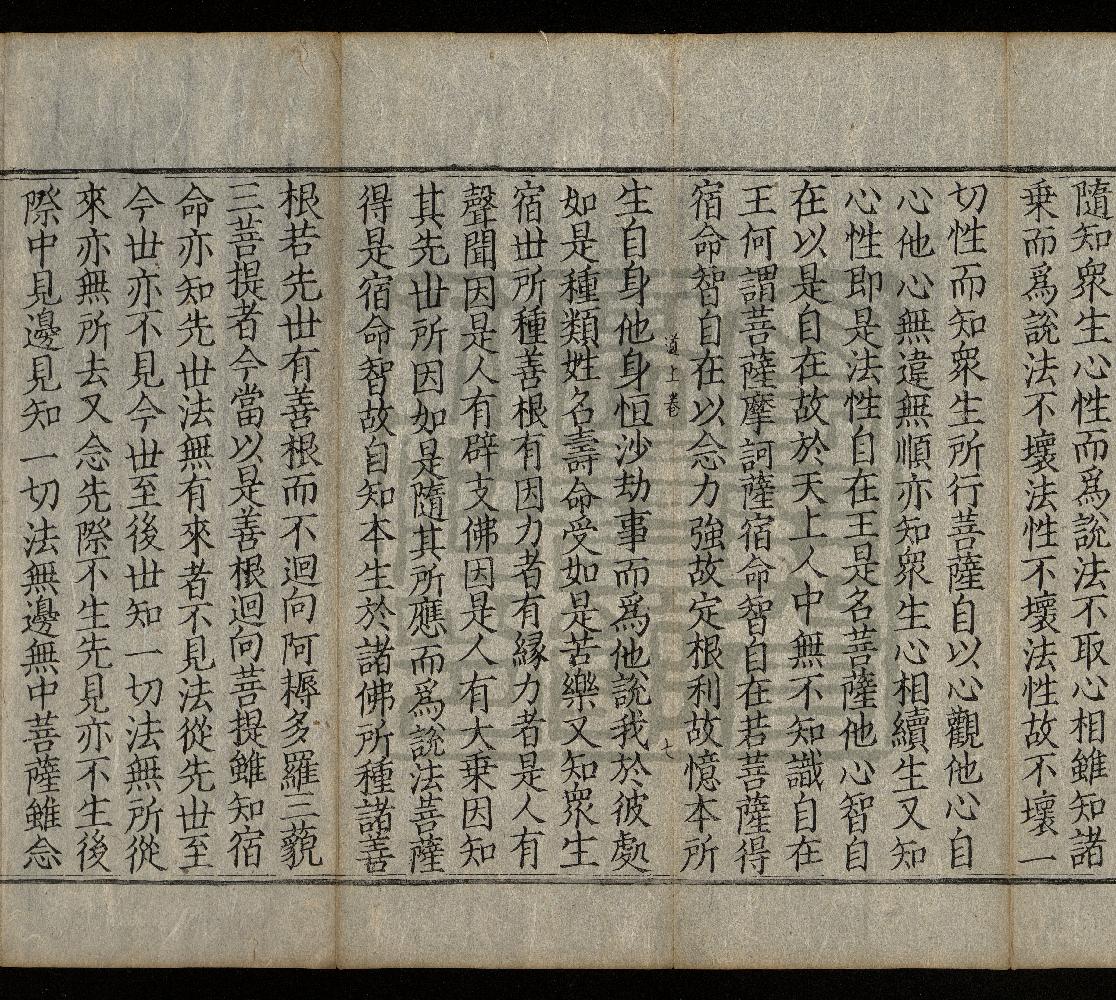 隨知衆生心性而爲説法不取心相雖知諸
乗而爲説法不壞法性不壞法性故不壞一
切性而知衆生所行菩薩自以心觀他心自
心他心無違無順亦知衆生心相續生又知
心性即是法性自在王是名菩薩他心智自
在以是自在故於天上人中無不知識自在
王何謂菩薩摩訶薩宿命智自在若菩薩得
宿命智自在以念力強故定根利故憶本所
道上卷 七
生自身他身恒沙劫事而爲他說我於彼處
如是種類姓名壽命受如是苦樂又知衆生
宿世所種善根有因力者有縁力者是人有
聲聞因是人有辟支佛因是人有大乗因知
其先世所因如是隨其所應而爲說法菩薩
得是宿命智故自知本生於諸佛所種諸善
根若先世有善根而不迴向阿耨多羅三藐
三菩提者今當以是善根迴向菩提雖知宿
命亦知先世法無有來者不見法從先世至
今世亦不見今世至後世知一切法無所從
來亦無所去又念先際不生先見亦不生後
際中見邊見知一切法無邊無中菩薩雖念